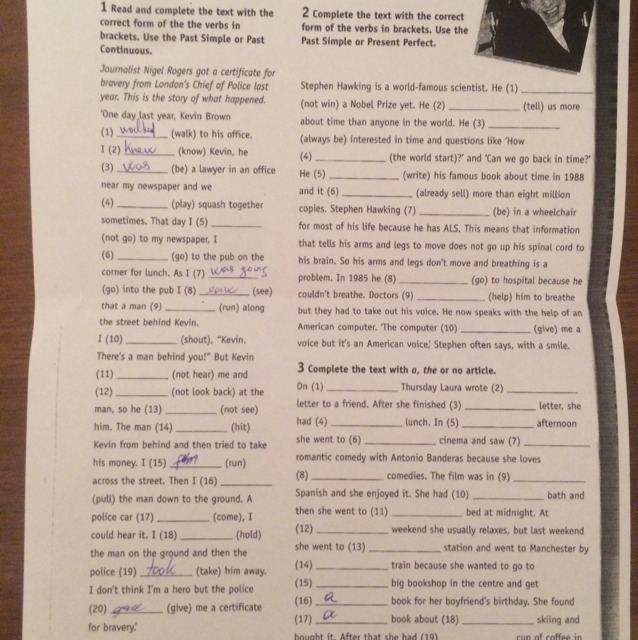 1 Read and complete the text with the
correct form of the the verbs in
brackets. Use the Past Simple or Past
Continuous.
Journalist Nigel Rogers got a certificate for
bravery from London's Chief of Police last
year. This is the story of what happened.
'One day last year, Kevin Brown
(1) walked (walk) to his office.
I (2) knew (know) Kevin, he
(3) was (be) a lawyer in an office
near my newspaper and we
(4) ________ (play) squash together
sometimes. That day I (5) ________
(not go) to my newspaper, I
(6) ________ (go) to the pub on the
corner for lunch. As I (7) was going
(go) into the pub I (8) (see)
that a man (9) ________ (run) along
the street behind Kevin.
I (10) ________ (shout), "Kevin.
There's a man behind you!" But Kevin
(11) ________ (not hear) me and
(12) ________ (not look back) at the
man, so he (13) ________ (not see)
him. The man (14) ________ (hit)
Kevin from behind and then tried to take
his money. I (15) (run)
across the street. Then I (16) ________
(pull) the man down to the ground. A
police car (17) ________ (come), I
could hear it. I (18) ________ (hold)
the man on the ground and then the
police (19) took (take) him away.
I don't think I'm a hero but the police
(20) gave (give) me a certificate
for bravery.'
2 Complete the text with the correct
form of the verbs in brackets. Use the
Past Simple or Present Perfect.
Stephen Hawking is a world-famous scientist. He (1) ________
(not win) a Nobel Prize yet. He (2) ________ (tell) us more
about time than anyone in the world. He (3) ________
(always be) interested in time and questions like 'How
(4) ________ (the world start)?' and 'Can we go back in time?'
He (5) ________ (write) his famous book about time in 1988
and it (6) ________ (already sell) more than eight million
copies. Stephen Hawking (7) ________ (be) in a wheelchair
for most of his life because he has ALS. This means that information
that tells his arms and legs to move does not go up his spinal cord to
his brain. So his arms and legs don't move and breathing is a
problem. In 1985 he (8) ________ (go) to hospital because he
couldn't breathe. Doctors (9) ________ (help) him to breathe
but they had to take out his voice. He now speaks with the help of an
American computer. 'The computer (10) ________ (give) me a
voice but it's an American voice,' Stephen often says, with a smile.
3 Complete the text with a, the or no article.
On (1) ________ Thursday Laura wrote (2) ________
letter to a friend. After she finished (3) ________ letter, she
had (4) ________ lunch. In (5) ________ afternoon
she went to (6) ________ cinema and saw (7) ________
romantic comedy with Antonio Banderas because she loves
(8) ________ comedies. The film was in (9) ________
Spanish and she enjoyed it. She had (10) ________ bath and
then she went to (11) ________ bed at midnight. At
(12) ________ weekend she usually relaxes, but last weekend
she went to (13) ________ station and went to Manchester by
(14) ________ train because she wanted to go to
(15) ________ big bookshop in the centre and get
(16) a book for her boyfriend's birthday. She found
(17) a book about (18) ________ skiing and
bought it. After that she had (19) ________ cup of coffee in